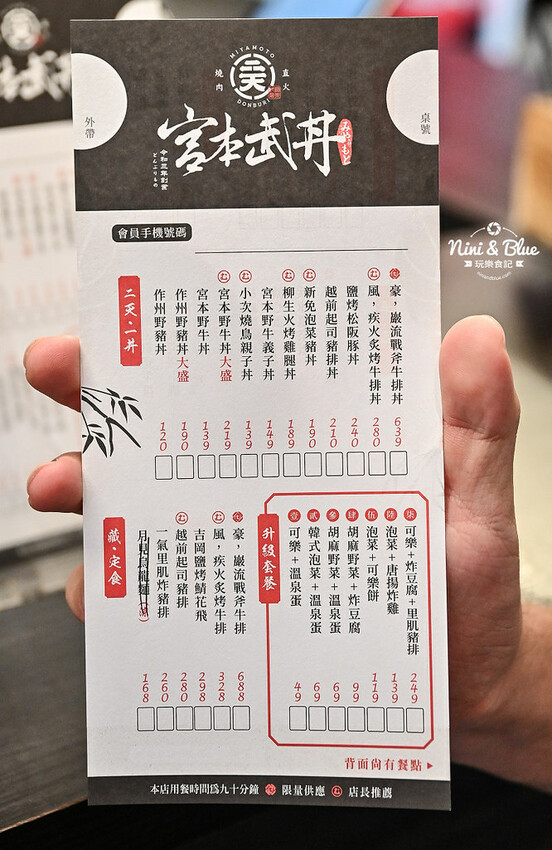 MIYAMOTO
二天
DONBURI
直火
燒肉
宮本武丼
みやもと
令和三年創業
どんぶりもの
外帶
桌號
會員手機號碼
Nini & Blue
玩樂食記
niniandblue.com
二天・一丼
豪，巖流戰斧牛排丼 639
風，疾火炙烤牛排丼 280
鹽烤松阪豚丼 240
越前起司豬排丼 210
新免泡菜豬丼 190
柳生火烤雞腿丼 189
宮本野牛義子丼 149
小次燒鳥親子丼 139
宮本野牛丼大盛 219
宮本野牛丼 139
作州野豬丼大盛 190
作州野豬丼 120
升級套餐
柒 可樂＋炸豆腐＋里肌豬排 249
陸 泡菜＋唐揚炸雞 139
伍 泡菜＋可樂餅 119
肆 胡麻野菜＋炸豆腐 99
參 胡麻野菜＋溫泉蛋 69
貳 韓式泡菜＋溫泉蛋 69
壹 可樂＋溫泉蛋 49
藏・定食
豪，巖流戰斧牛排 688
風，疾火炙烤牛排 328
吉岡鹽烤鯖花飛 298
越前起司豬排 280
一氣里肌炸豬排 260
月見烏龍麵 168
背面尚有餐點
本店用餐時間為九十分鐘 限量供應 む 店長推薦